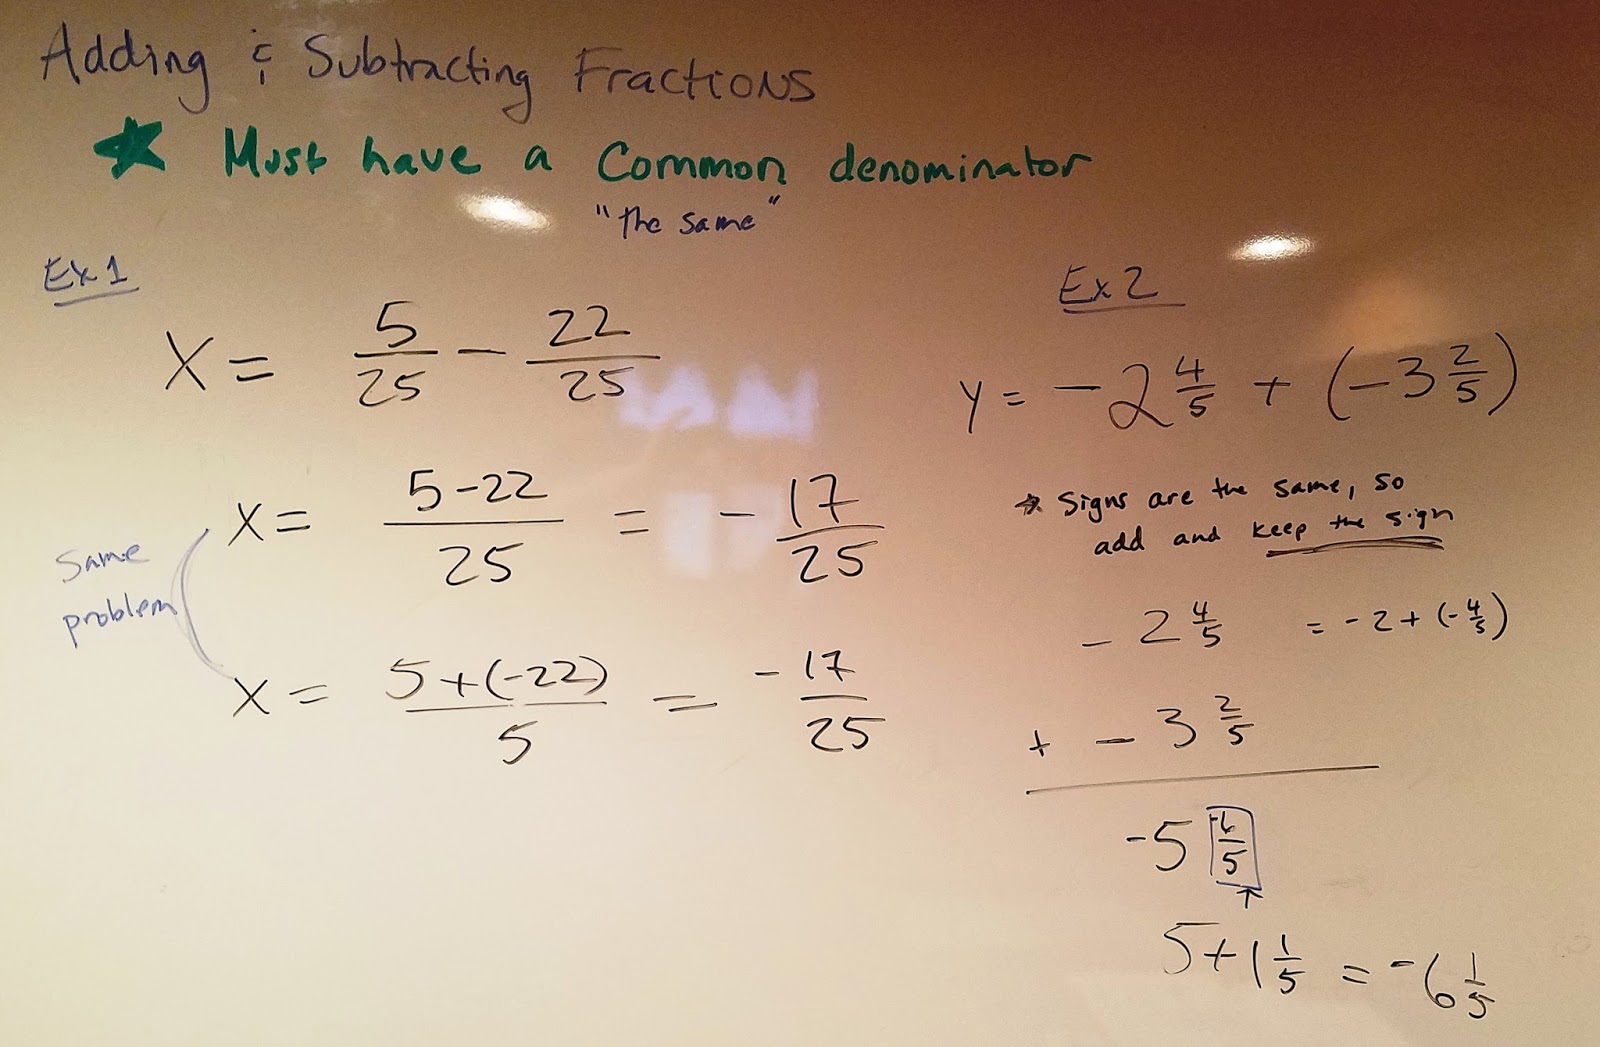 Adding & Subtracting Fractions
★ Must have a Common denominator
"the same"
Ex 1
X = 5/25 - 22/25
X = (5-22)/25 = - 17/25
Same problem
X = (5+(-22))/5 = - 17/25
Ex 2
y = -2 4/5 + (-3 2/5)
* Signs are the same, so
add and keep the sign
- 2 4/5 = -2 + (-4/5)
+ - 3 2/5
-5 -6/5
↑
5+1 1/5 = -6 1/5